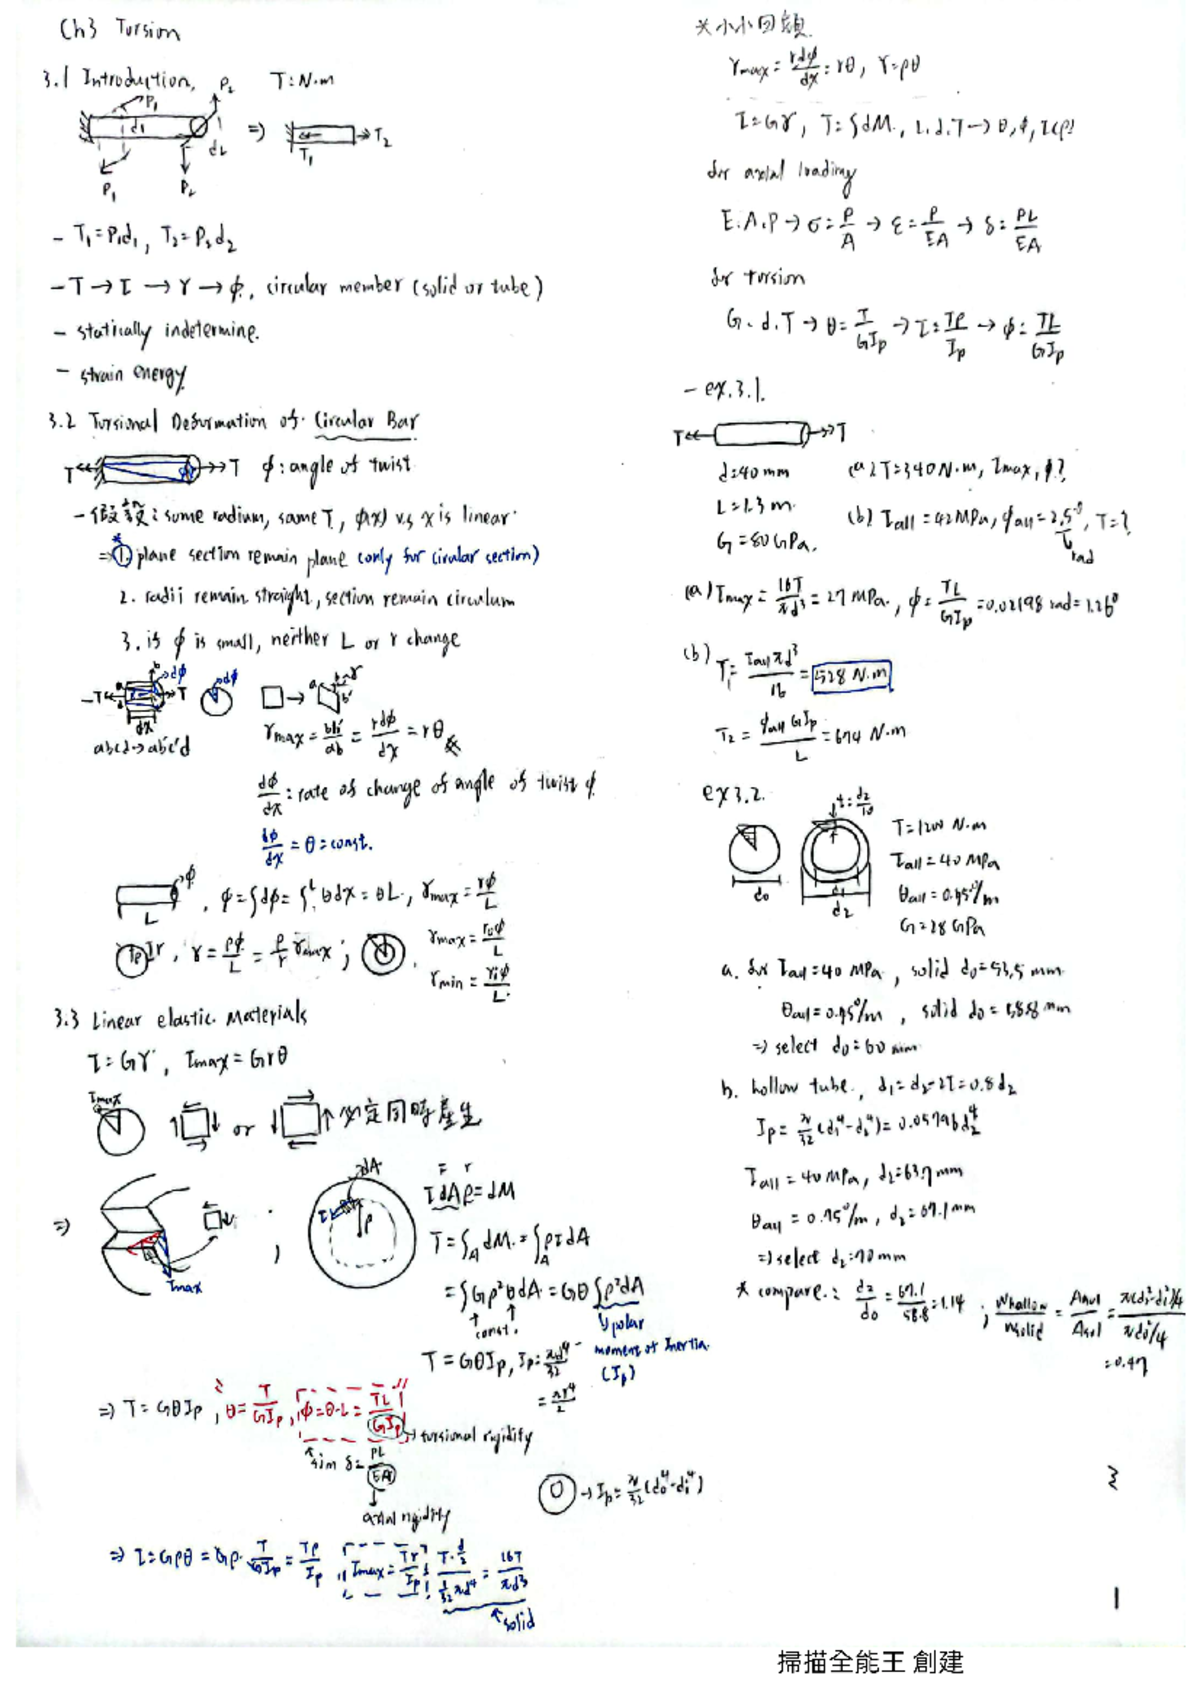 Ch3 Torsion
3.1 Introduction, T: N·m
P₁ P₂ d₁ d₂ ⇒ T₁ T₂
P₁ P₂
- T₁ = P₁d₁, T₂ = P₂d₂
- T → τ → γ → ϕ, circular member (solid or tube)
- statically indetermine.
- strain energy
3.2 Torsional Deformation of Circular Bar
T T ϕ: angle of twist
- 假設: same radium, same T, ϕ(x) vs x is linear
⇒ 1. plane section remain plane (only for circular section)
2. radii remain straight, section remain circulum
3. is ϕ is small, neither L or r change
T T dϕ dϕ → γ
dx
abcd → ab'c'd γmax = bb'/ab = rdϕ/dx = rθ
dϕ/dx : rate of change of angle of twist ϕ
dϕ/dx = θ = const.
L ϕ, ϕ = ∫dϕ = ∫ᴸ θdx = θL, γmax = rϕ/L
ρ r, γ = ρϕ/L = ρ/r γmax ; γmax = r₀ϕ/L
γmin = rᵢϕ/L
3.3 Linear elastic Materials
τ = Gγ, τmax = Grθ
τmax or 必定同時產生
dA
τdAρ = dM
⇒ τmax ; τ ρ
T = ∫_A dM = ∫_A ρτdA
= ∫Gρ²θdA = Gθ∫ρ²dA
const. polar
moment of Inertia (Ip)
T = GθIp, Ip = πd⁴/32
= πr⁴/2
⇒ T = GθIp, θ = T/GIp, ϕ = θ·L = TL/GIp → torsional rigidity
sim δ = PL/EA
axial rigidity
O → Ip = π/32 (d₀⁴ - dᵢ⁴)
⇒ τ = Gρθ = Gρ · T/GIp = Tρ/Ip, τmax = Tr/Ip = T·d/2 / 1/32 πd⁴ = 16T/πd³
solid
*小小回顧
γmax = rdϕ/dx = rθ, γ = ρθ
τ = Gγ, T = ∫dM, L.d.T → θ, ϕ, τ(ρ)
for axial loading
E.A.P → σ = P/A → ε = P/EA → δ = PL/EA
for torsion
G.d.T → θ = T/GIp → τ = Tρ/Ip → ϕ = TL/GIp
- ex.3.1.
T T
d = 40 mm (a) T = 340 N·m, τmax, ϕ?
L = 1.3 m (b) τall = 42 MPa, ϕall = 2.5°, T = ?
G = 80 GPa. rad
(a) τmax = 16T/πd³ = 27 MPa, ϕ = TL/GIp = 0.02198 rad = 1.26°
(b) T₁ = τall πd³/16 = 528 N·m
T₂ = ϕall GIp/L = 674 N·m
ex3.2. t = d₂/10
T = 1200 N·m
τall = 40 MPa
d₀ d₁ θall = 0.75°/m
d₂ G = 78 GPa
a. for τall = 40 MPa, solid d₀ = 53.5 mm
θall = 0.75°/m, solid d₀ = 58.8 mm
⇒ select d₀ = 60 mm
b. hollow tube, d₁ = d₂ - 2t = 0.8d₂
Ip = π/32 (d₂⁴ - d₁⁴) = 0.05796d₂⁴
τall = 40 MPa, d₂ = 63.7 mm
θall = 0.75°/m, d₂ = 67.1 mm
⇒ select d₂ = 70 mm
* compare: d₂/d₀ = 67.1/58.8 = 1.14 ; Whollow/Wsolid = Ahol/Asol = π(d₂² - d₁²)/4 / πd₀²/4
= 0.47
1
掃描全能王 創建